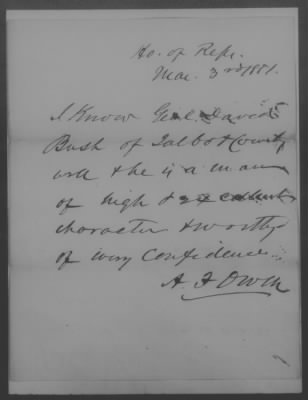 Ho. of Repr.
Mar. 3rd 1881.
I Know Genl David
Bush of Talbot County
well & he is a man
of high & excellent
character & worthy
of every Confidence.
A. F. Owen